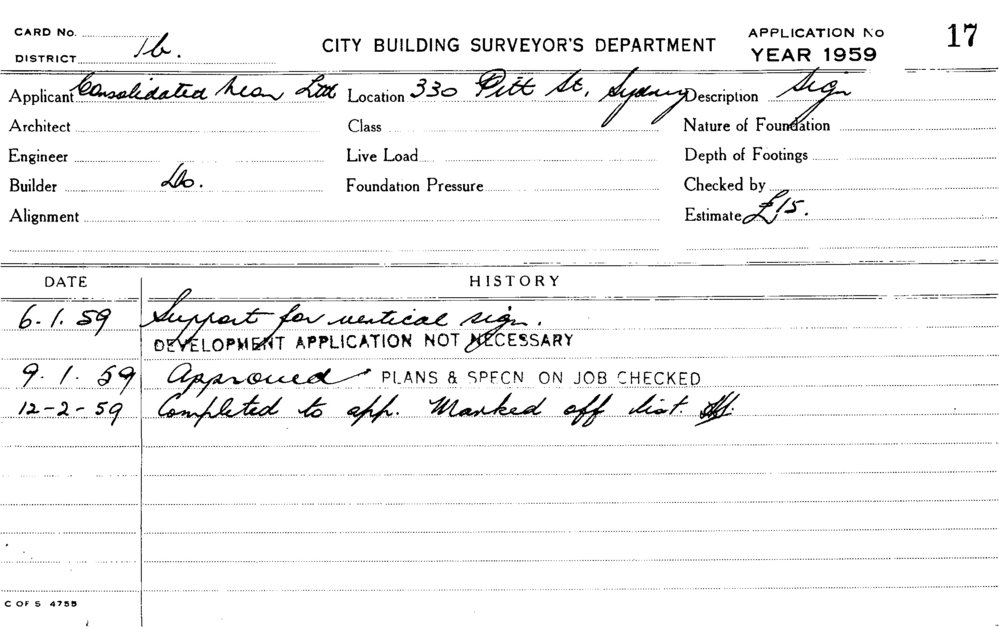 CARD No.
DISTRICT 1b.
CITY BUILDING SURVEYOR'S DEPARTMENT
APPLICATION No 17
YEAR 1959
Applicant Consolidated Neon Ltd Location 330 Pitt St, Sydney Description Sign
Architect Class Nature of Foundation
Engineer Live Load Depth of Footings
Builder Do. Foundation Pressure Checked by
Alignment Estimate £15.
DATE HISTORY
6.1.59 Support for vertical sign.
DEVELOPMENT APPLICATION NOT NECESSARY
9.1.59 Approved PLANS & SPECN ON JOB CHECKED
12-2-59 Completed to app. Marked off list.
C OF S 4755